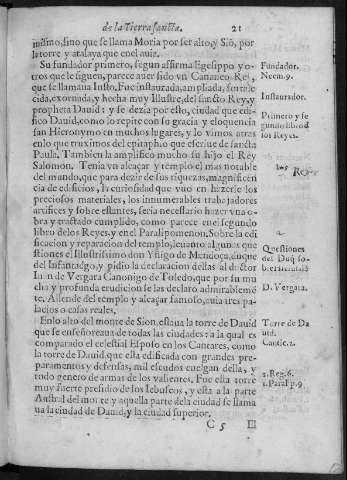 de la Tierra sancta. 21
mismo, sino que se llama Moria por ser alto, y Sió, por
la torre y atalaya que en el auia.
Su fundador primero, segun affirma Egesippo y o-
tros que le siguen, parece auer sido vn Cananeo Rei,
que se llamaua Iusto, Fue instaurada, ampliada, fortale-
cida, exornada, y hecha muy Illustre, del sancto Rey, y
propheta Dauid: y se dezia por esto, ciudad que edi-
fico Dauid, como lo repite con su gracia y eloquencia
san Hieronymo en muchos lugares, y lo vimos atras
enlo que truximos del epitaphio que escriue de sancta
Paula. Tambien la amplifico mucho su hijo el Rey
Salomon. Tenia vn alcaçar y templo el mas notable
del mundo, que para dezir de sus riquezas, magnificen
cia de edificios, la curiosidad que vuo en hazerle los
preciosos materiales, los innumerables trabajadores
artifices y sobre estantes, seria necessario hazer vna o-
bra y tractado cumplido, como parece enel segundo
libro delos Reyes, y enel Paralipomenon. Sobre la edi
ficacion y reparacion del templo, leuanto algunas que
stiones el Illustrissimo don Yñigo de Mendoça, duque
del Infantadgo, y pidio la declaracion dellas al doctor
Iuan de Vergara Canonigo de Toledo, que por su mu
cha y profunda erudicion se las declaro admirableme
te. Allende del templo y alcaçar famoso, auia tres pa-
lacios o casas reales.
Enlo alto del monte de Sion, estaua la torre de Dauid
que se enseñoreaua de todas las ciudades: a la qual es
comparado el celestial Esposo en los Cantares, como
la torre de Dauid. que esta edificada con grandes pre-
paramentos y defensas, mil escudos cuelgan della, y
todo genero de armas de los valientes. Fue esta torre
muy fuerte presidio de los Iebuseos, y esta a la parte
Austral del monte y aquella parte dela ciudad se llama
ua la ciudad de Dauid, y la ciudad superior.
C 5 El
Fundador.
Neem. 9.
Instaurador.
Primero y se
gundo libro d
los Reyes.
Reyes
Questiones
del Duq so-
D. Vergara.
Torre de Da
uid.
Cantic. 2.
2. Reg. 6.
1. Paral p. 9